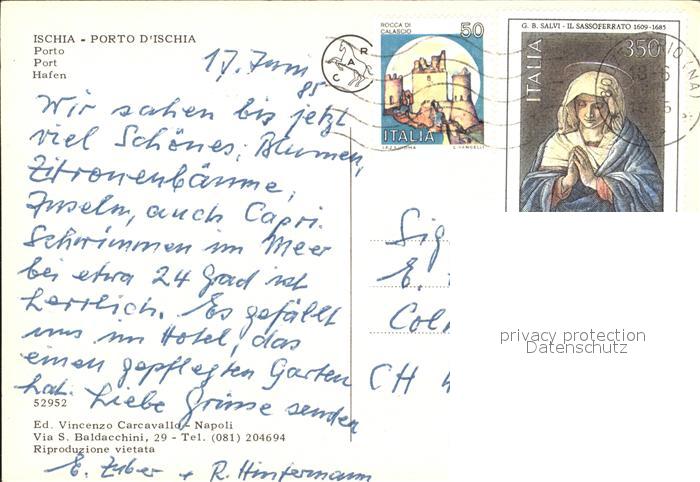 ISCHIA - PORTO D'ISCHIA
Porto
Port
Hafen
17. Juni
85
Wir sahen bis jetzt
viel Schönes; Blumen,
Zitronenbäume,
Inseln, auch Capri.
Schwimmen im Meer
bei etwa 24 Grad ist
herrlich. Es gefällt
uns im Hotel, das
einen gepflegten Garten
hat. Liebe Grüsse senden
52952
Ed. Vincenzo Carcavallo - Napoli
Via S. Baldacchini, 29 - Tel. (081) 204694
Riproduzione vietata
E. Zuber + R. Hintermann
R
A
C
ROCCA DI
CALASCIO
50
ITALIA
I.P.Z.S. ROMA
E. VANGELLI
G. B. SALVI - IL SASSOFERRATO 1609-1685
350
ITALIA
(NA)
Sig
E.
Col
CH
privacy protection
Datenschutz